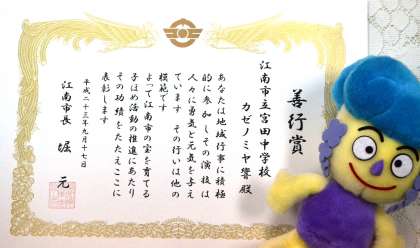 善行賞
江南市立宮田中学校
カゼノミヤ響殿
あなたは地域行事に積極
的に参加しその演技は
人々に勇気と元気を与え
ています その行いは他の
模範です
よって江南市の宝を育てる
子ほめ活動の推進にあたり
その功績をたたえここに
表彰します
平成二十三年九月十七日
江南市長 堀 元